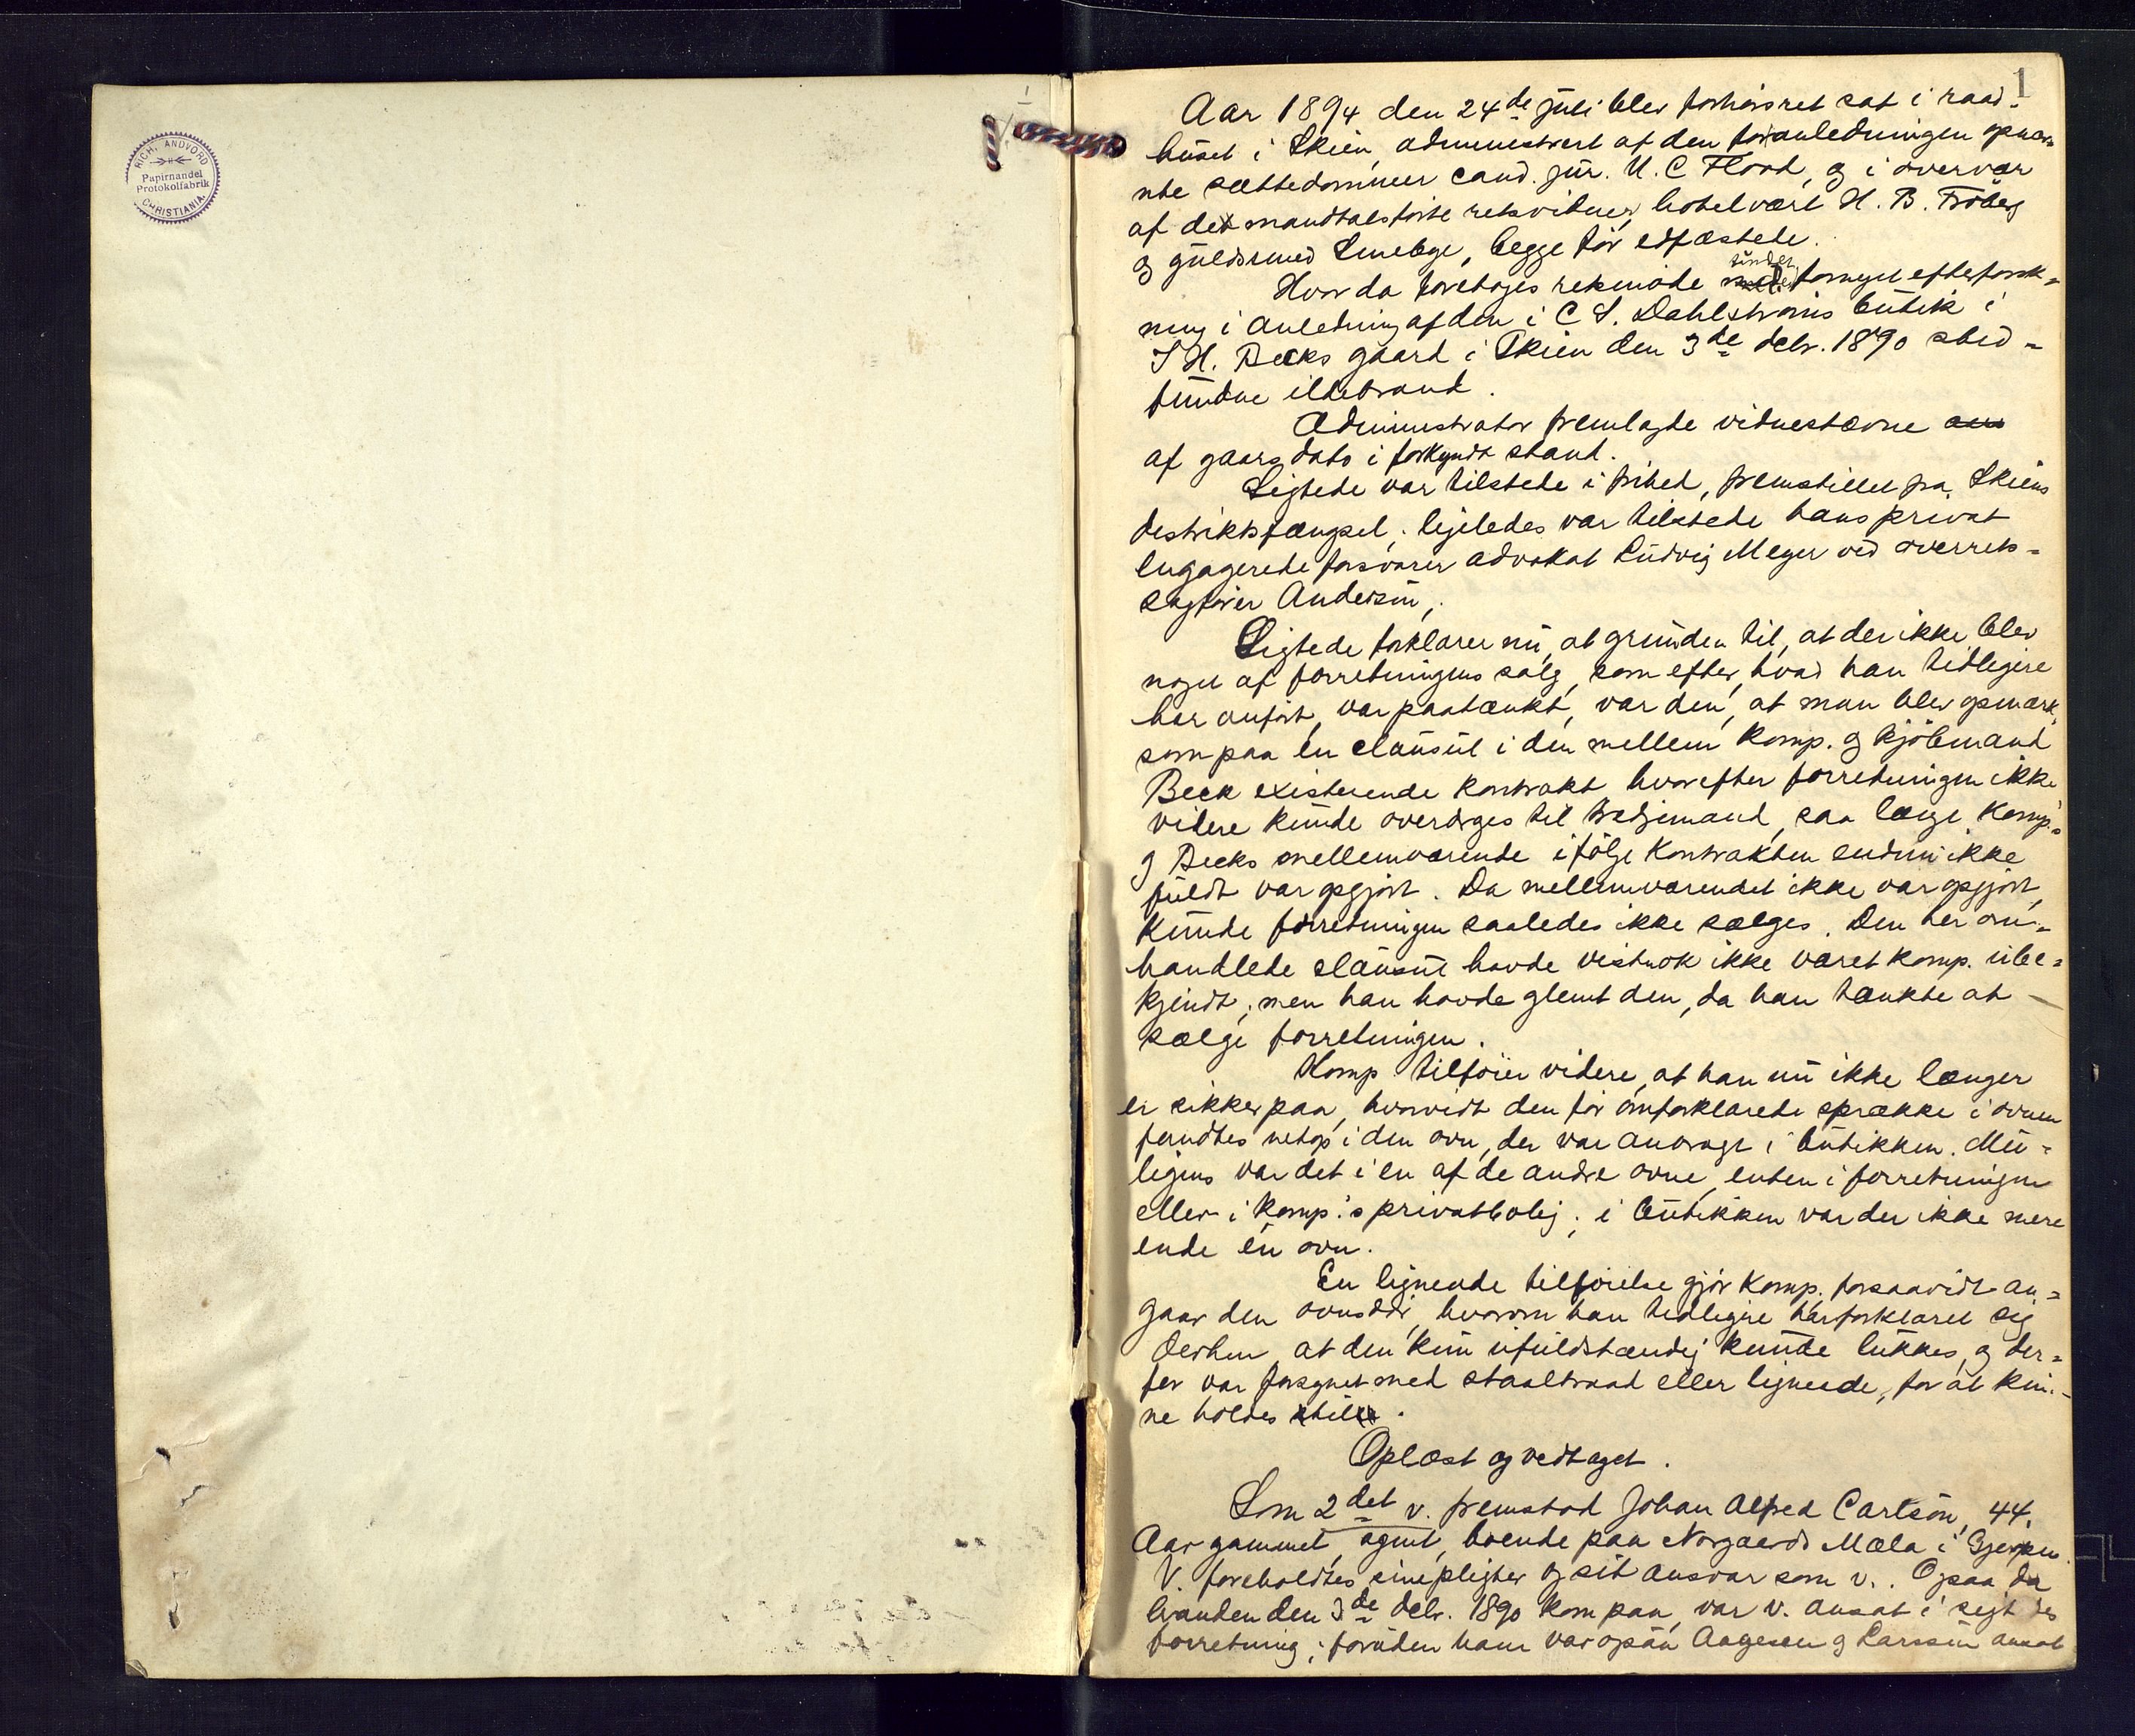 RICH. ANDVORD
Papirnandel
Protokolfabrik
CHRISTIANIA
1
Aar 1894 den 24de juli blev forhørsret sat i raad-
huset i Skien, administrert af den for anledningen opnæv-
nte sættedommer cand. jur. U. C Flood, og i overvær
af de mandtalsførte retsvidner, hotelvært H. B. Fröberg
og guldsmed Smebye, begge før edfæstede.
Hvor da foretoges retsmøde under fornyet efterforsk-
ning i anledning af den i C S. Dahlstrøms butik i
J H. Becks gaard i Skien den 3de debr. 1890 sted-
fundne ildebrand.
Administrator fremlagde vidnestævne
af gaars dato i forkyndt stand.
Sigtede var tilstede i frihed, fremstillet fra Skiens
distriktsfængsel; ligeledes var tilstede hans privat
engagerede forsvarer advokat Ludvig Meyer ved overrets-
sagfører Andersen,.
Sigtede forklarer nu, at grunden til, at der ikke blev
noget af forretningens salg, som efter, hvad han tidligere
har anført, var paatænkt, var den, at man blev opmærk-
som paa en clausul i den mellem komp. og kjøbmand
Beck existerende kontrakt hvorefter forretningen ikke
videre kunde overdrages til tredjemand, saa længe komp.s
og Becks mellemværende ifølge kontrakten endnu ikke
fuldt var opgjort. Da mellemværendet ikke var opgjort,
kunde forretningen saaledes ikke sælges. Den her om-
handlede clausul havde vistnok ikke været komp. ube-
kjendt; men han havde glemt den, da han tænkte at
sælge forretningen.
Komp tilføier videre, at han nu ikke længer
er sikker paa, hvorvidt den før omforklarede sprække i ovnen
fandtes netop i den ovn, der var anbragt i butikken. Mu-
ligens var det i en af de andre ovne, enten i forretningen
eller i komp.'s privatbolig; i butikken var der ikke mere
ende en ovn.
En lignende tilføielse gjør komp. forsaavidt an-
gaar den ovnsdør, hvorom han tidligere har forklaret sig
derhen, at den kun ufuldstændig kunde lukkes, og der-
for var forsynet med staaltraad eller lignende, for at kun-
ne holdes til.
Oplæst og vedtaget.
Som 2det v. fremstod Johan Alfred Carlson, 44,
Aar gammel, agent, boende paa Norgaards Mæla i Gjerpen.
V. foreholdtes sine pligter og sit ansvar som v.. Ogsaa da
branden den 3de debr. 1890 kom paa, var v. ansat i sigtedes
forretning; foruden ham var ogsaa Aagesen og Larssen ansat